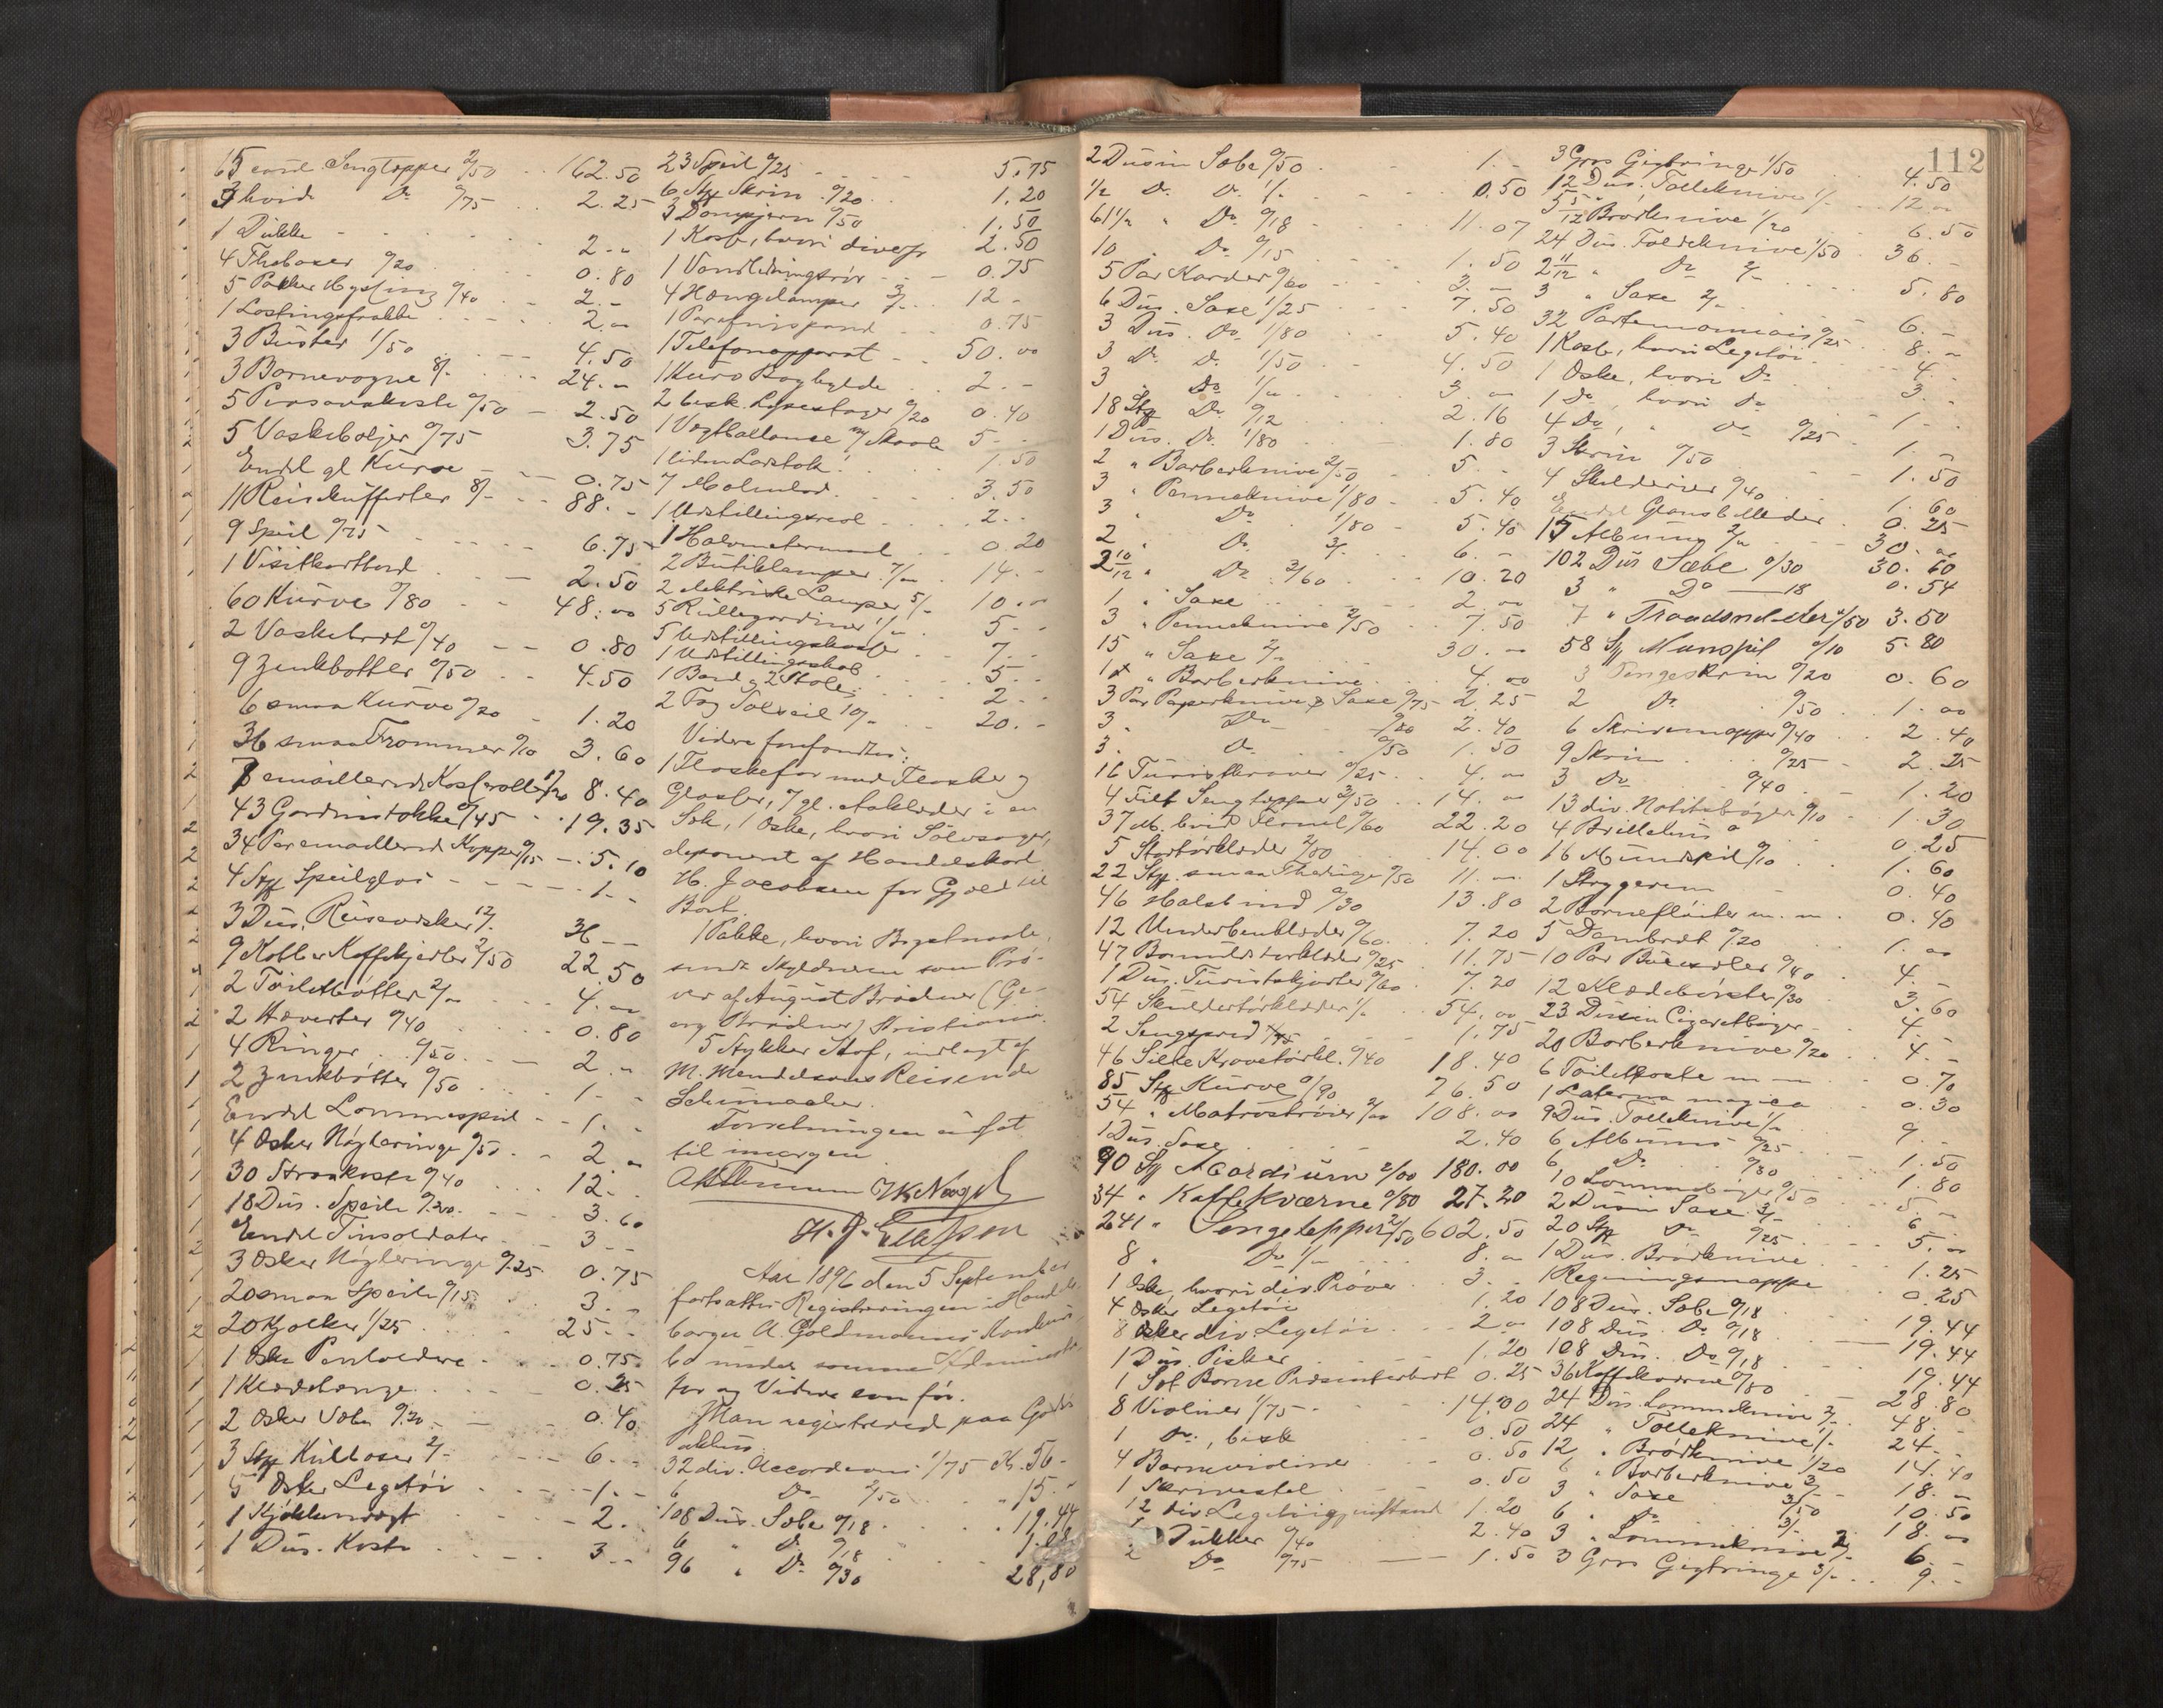 65 Sengtepper 2/50 162.50
3 hvide Do 0/75 2.25
1 Dukke 2.-
4 Theboxer 0/20 0.80
5 Pakker 0/40 2.-
1 Lastingsfrakke 2.00
3 Büster 1/50 4.50
3 Barnevogne 8/- 24.-
5 0/50 2.50
5 Vaskebaljer 0/75 3.75
Endel gl Kurve 0.75
11 Reisekufferter 8/- 88.-
9 Speil 0/75 6.75
1 Visitkortbord 2.50
60 Kurve 0/80 48.00
2 Vaskebret 0/40 0.80
9 Zinkbøtter 0/50 4.50
6 smaa Kurve 0/20 1.20
36 smaa Trommer 0/10 3.60
7 emaillerede Kasseroller 1/20 8.40
43 Gardinstokke 0/45 19.35
34 Par emaillerede Kopper 0/15 5.10
4 Stk Speilglas 1.-
3 Dus. 12/- 36.--
9 Kobber Kaffekjedler 2/50 22.50
2 Toiletbøtter 2/- 4.00
2 Haverter 0/40 0.80
4 Ringer 0/50 2.-
2 Zinkbøtter 0/50 1.-
Endel Lommespeil 1.-
4 Æsker Nøgleringe 0/50 2.00
30 Straakoste 0/40 12.-
18 Dus. Speile 0.20 3.60
Endel Tinsoldater 3.--
3 Æsker Nøgleringe 0.25 0.75
20 smaa Speile 0/15 3.-
20 Kjolker 1/25 25.-
1 Æske Penholdere 0.75
1 0.25
2 Æsker Sæbe 0.20 0.40
3 Stk Kulboxer 2/- 6.-
5 Æsker Legetøi 1.-
1 Kjøkkenvægt 2.-
1 Dus. Koste 3.-
23 Speil 0/25 5.75
6 Stk Skrin 0/20 1.20
3 0/50 1.50
1 Kasse, hvori diverse 2.50
1 Vandledningsrør 0.75
4 Hængelamper 3/- 12.-
1 Parafinspand 0.75
1 Telefonapparat 50.00
1 Boghylde 2.-
2 besk. Lysestager 0/20 0.40
1 Vægtballance m/ Skaale 5.-
1 liden Ladstok 1.50
7 3.50
1 Udstillingsreol 2.-
1 Halvmetermaal 0.20
2 Butiklamper 7/00 14.-
2 elektriske Lamper 5/- 10.00
5 Rullegardiner 1/00 5.-
5 Udstillingskasser 7.-
1 Udstillingsskab 5.-
1 Bord og 2 Stole 2.-
2 Fag Solseil 10/- 20.-
Videre forefandtes:
1 Flaskefor med Flasker og
Glasser, 7 gl. i en
Sæk, 1 Æske, hvori Sølvsager,
deponeret af Handelskarl
H. Jacobsen for Gjæld til
Boet.
1 Pakke, hvori
sendt Skyldneren som Prø-
ver af August Brødner (Ge-
org Brødner) Kristiania.
5 Stykker Stof, indlagt af
M. Mendelsons Reisende
Schumacher.
Forretningen udsat
til imorgen
Aar 1896 den 5 September
fortsattes Registreringen i Handels-
borger A. Goldmanns Konkurs-
bo under samme Administra-
tor og Vidner som før.
Man registrerede paa
32 div. Accordeons 1/75 Kr. 56.-
6 Do 2/50 " 15.-
108 Dus. Sæbe 0/18 19.44
6 " Do 0/18 1.08
96 " Do 0/30 28,80
112
2 Dusin Sæbe 0/50 1.-
1/2 Do Do 1/- 0.50
61 1/2 " Do 0/18 11.07
10 Do 0/15 1.50
5 Par Karder 0/60 3.-
6 Dus. Saxe 1/25 7.50
3 Dus. Do 1/80 5.40
3 Do Do 1/50 4.50
3 Do 1/00 3.00
18 Stk Do 0/12 2.16
1 Dus. Do 1/80 1.80
2 " Barberknive 2/50 5.-
3 " Penneknive 1/80 5.40
3 Do 1/80 5.40
2 " Do 3/- 6.-
2 10/12 " Do 3/60 10.20
1 " Saxe 2.00
3 " Penneknive 2/50 7.50
15 " Saxe 2/- 30.-
1 " Barberknive 4.00
3 Par Papirknive & Saxe 0/75 2.25
3 " Do 0/80 2.40
3 " Do 0/50 1.50
16 0/25 4.00
4 Filt Sengtepper 3/50 14.00
37 M. hvid Flanel 0/60 22.20
5 Stortørklæder 2/80 14.00
22 Stk. smaa 0/50 11.00
46 Halsbind 0/30 13.80
12 Underbenklæder 0/60 7.20
47 Bomuldstørklæder 0/25 11.75
1 Dus. Turistskjorter 0/60 7.20
54 Skuldertørklæder 1/- 54.00
2 1.75
46 Silke 0/40 18.40
85 Stk Kurve 0/90 76.50
54 " Matrostrøier 2/00 108.00
1 Dus. Saxe 2.40
90 St Acordium 2/00 180.00
34 " Kaffekværne 0/80 27.20
241 " Sengetepper 2/50 602.50
8 " Do 1/00 8.00
1 Æske, hvori div Prøver 3.-
4 Æsker Legetøi 1.20
8 Æsker div Legetøi 2.00
1 Dus. Pisker 1.20
1 Set Børne Præsenterbret 0.25
8 Violiner 1/75 14.00
1 Do, besk 0.50
4 Barnevioliner 0.50
1 0.50
12 div Legetøigjenstande 1.20
Dukker 0/40 2.40
2 Do 0/75 1.50
3 Gros Gigtringe 1/50 4.50
12 Dus. Tolleknive 1/- 12.00
5 5/12 Brødknive 1/20 6.50
24 Dus. Foldeknive 1/50 36.-
2 11/12 " Do 2/- 5.80
3 " Saxe 2/- 6.-
32 Portemonnaier 0/25 8.-
1 Kasse, hvori Legetøi 4.-
1 Æske, hvori Do 3.-
1 Do hvori Do 1.-
4 Do, " Do 0/25 1.-
3 Skrin 0/50 1.50
4 Skilderier 0/40 1.60
Endel Glansbilleder 0.25
15 Albums 2/00 30.00
102 Dus Sæbe 0/30 30.60
3 " Do — 18 0.54
7 " 0/50 3.50
58 St Munspil 0/10 5.80
3 Pengeskrin 0/20 0.60
2 Do 0/50 1.00
6 Skrivemapper 0/40 2.40
9 Skrin 0/25 2.25
3 Do 0/40 1.20
13 div. Notitsbøger 0/10 1.30
4 Brillehus 0.25
16 Mundspil 0/10 1.60
1 Strygerem 0.40
2 Børnefløiter m. m. 0.40
5 Dambret 0/20 1.00
10 Par 0/40 4.-
12 Klædebørster 0/30 3.60
23 Dusin Cigaretbøger 4.-
20 Barberknive 0/20 4.-
6 m m 0.70
1 Laterna magica 0.30
9 Dus. Tolleknive 1/- 9.-
6 Albums 0/25 1.50
6 Do 0/30 1.80
10 Lommebøger 0/50 5.-
2 Dusin Saxe 3/- 6.-
20 Stk Do 0/25 5.00
1 Dus. Brødknive 1.25
1 Regningsmappe 0.25
108 Dus. Sæbe 0/18 19.44
108 Dus Do 0/18 19.44
108 Dus. Do 0/18 19.44
36 Kaffekværne 0/80 28.80
24 Dus. Lommeknive 2/- 48.-
24 " Tolleknive 1/- 24.-
12 " Brødknive 1/20 14.40
6 " Barberknive 3/- 18.-
3 " Saxe 3/50 10.50
6 " Do 3/- 18.00
3 " Lommeknive 2/- 6.-
3 Gros Gigtringe 3/- 9.-